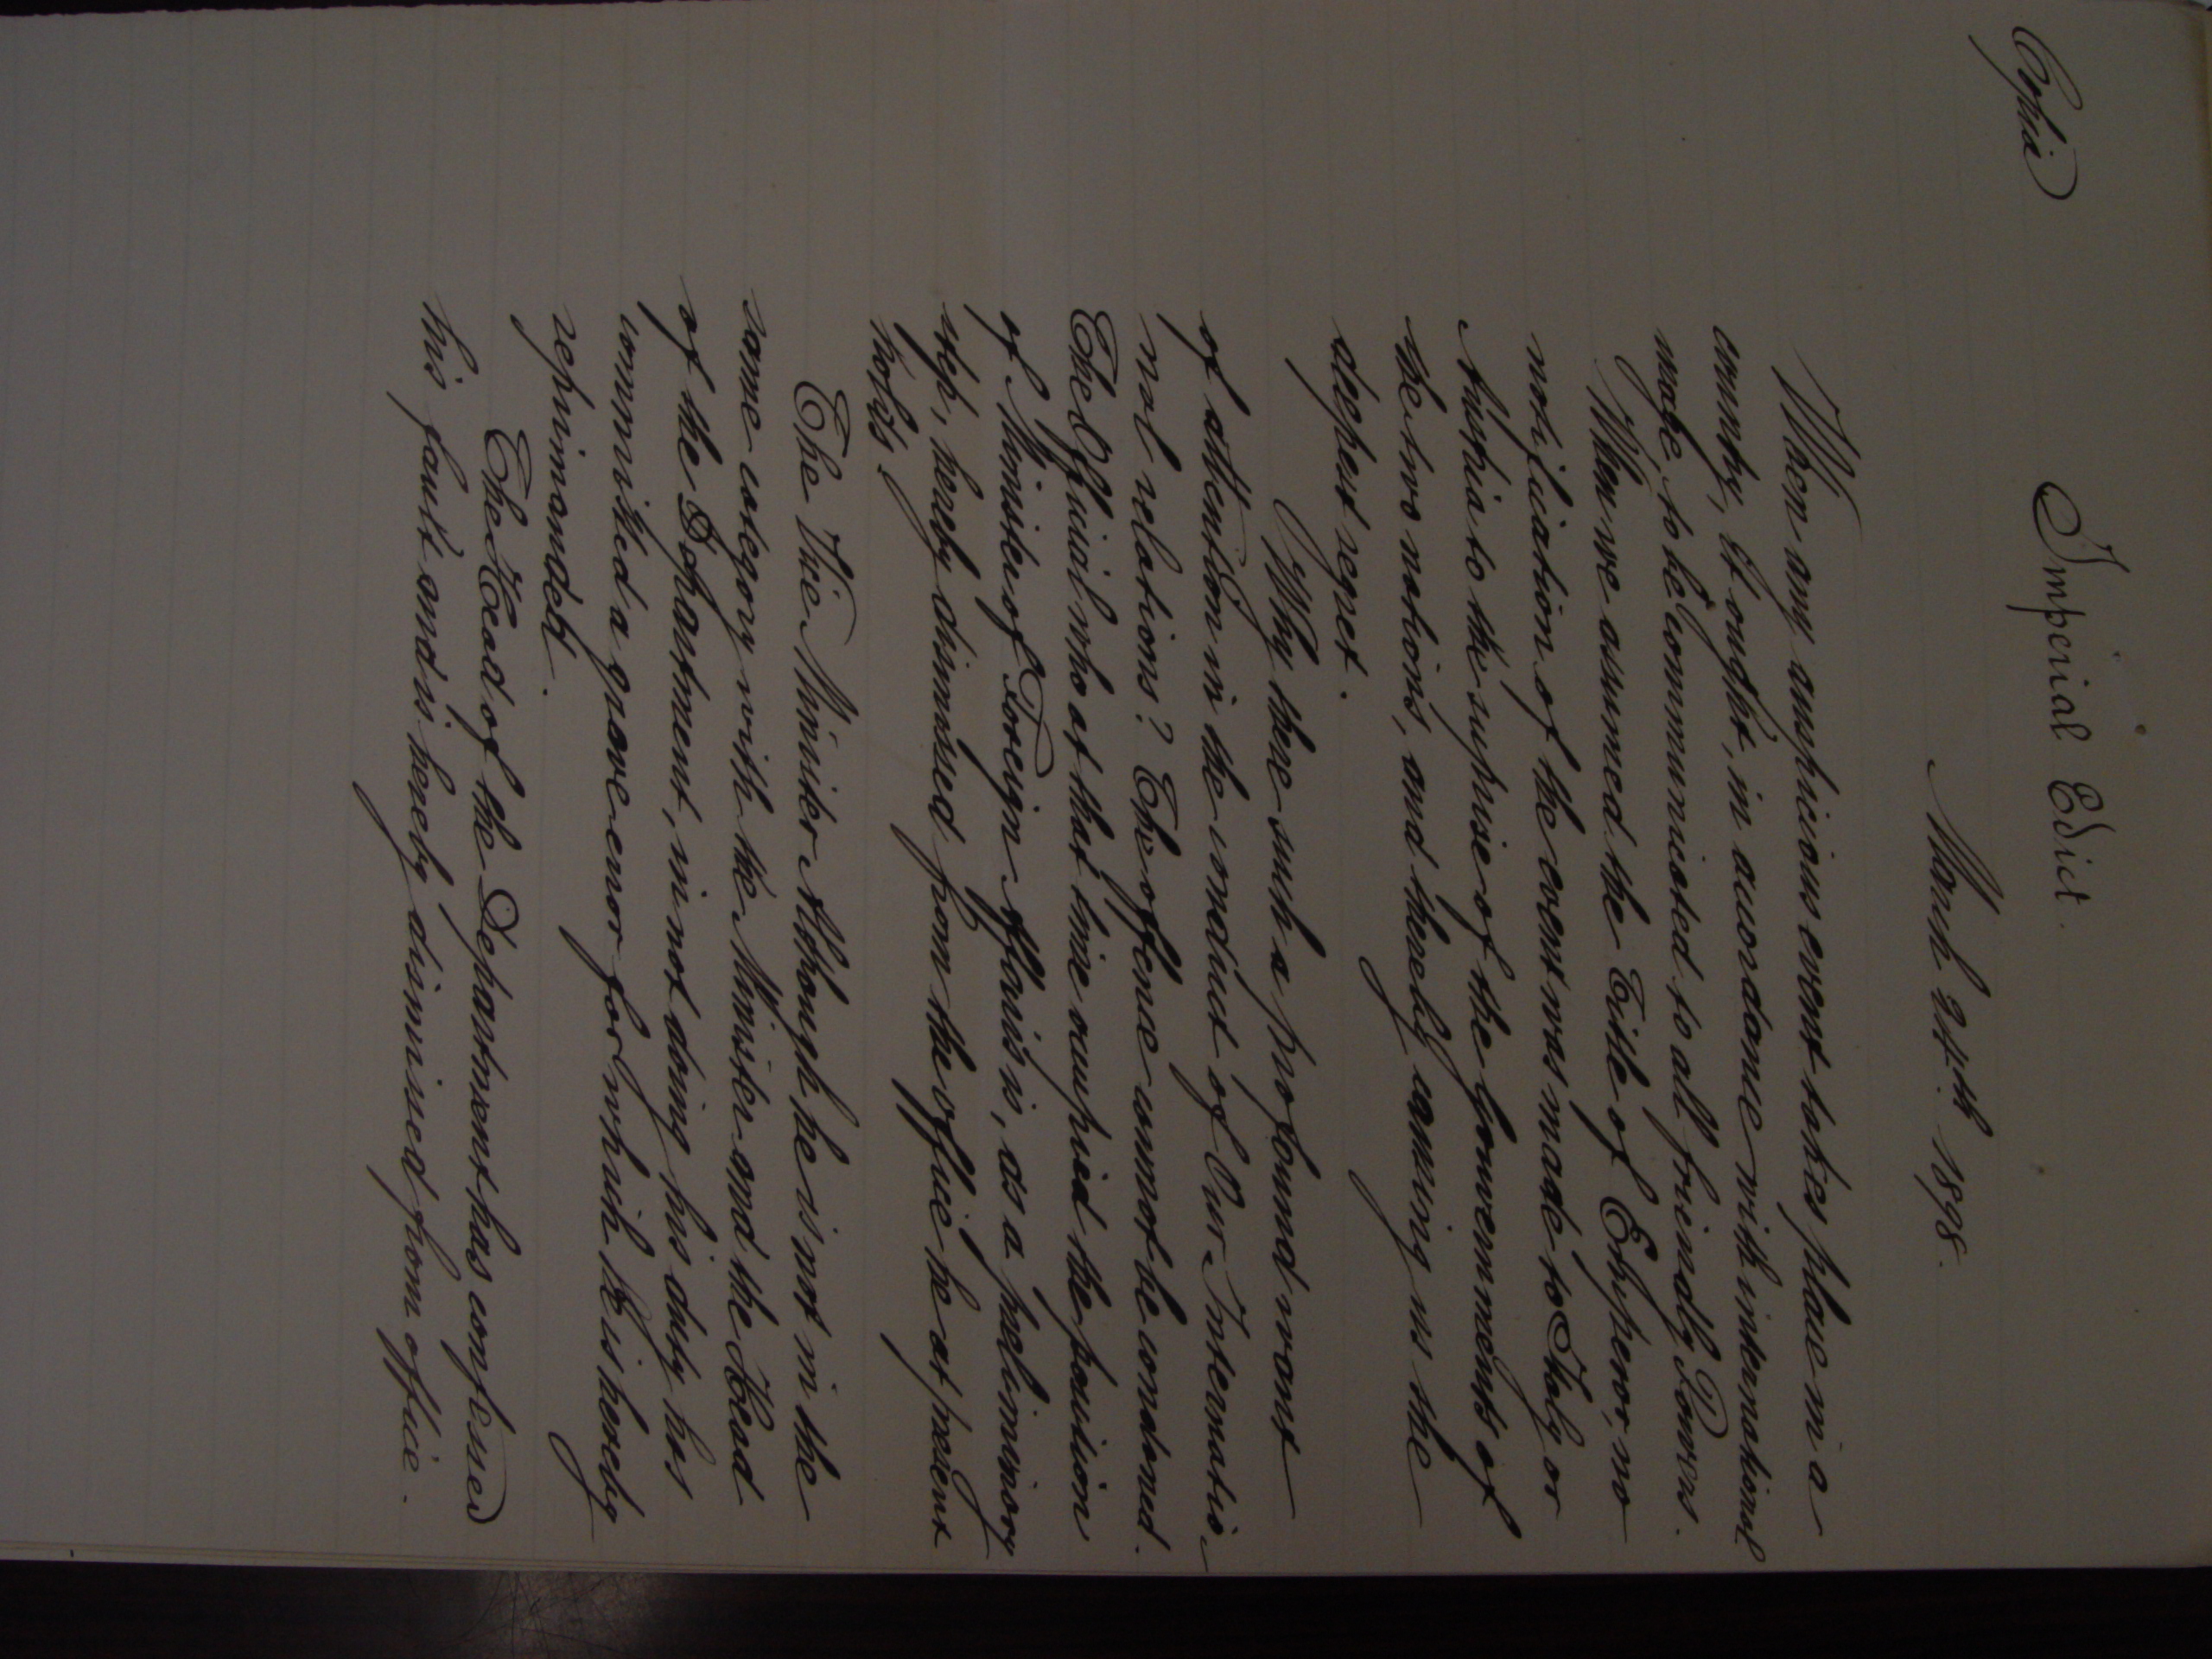 Copia
Imperial Edict.
March 24th. 1898.
When any auspicious event takes place in a
country, it ought, in accordance with international
usage, to be communicated to all friendly Powers.
When we assumed the Title of Emperor, no
notification of the event was made to Italy or
Austria to the surprise of the Governments of
the two nations, and thereby causing us the
deepest regret.
Why there such a profound want
of attention in the conduct of Our Internatio-
nal relations? The offence cannot be condoned.
The Official who at that time occupied the position
of Minister of Foreign Affairs is, as a preliminary
step, hereby dismissed from the office he at present
holds.
The Vice Minister Although he is not in the
same category with the Minister and the Head
of the Department, in not doing his duty has
committed a grave error for which he is hereby
reprimanded.
The Head of the Department has confessed
his fault and is hereby dismissed from office.